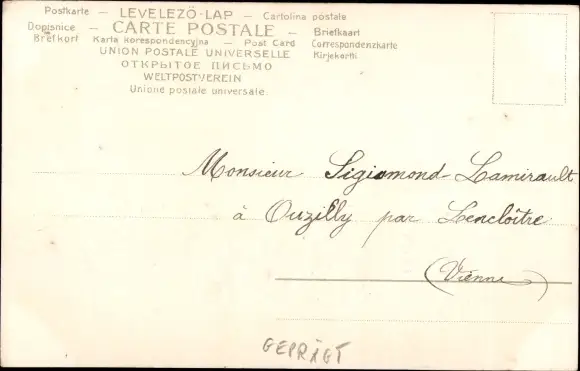 Postkarte — LEVELEZŐ-LAP — Cartolina postale
Dopisnice — CARTE POSTALE — Briefkaart
Brefkort Karta korespondencyjna — Post Card Correspondenzkarte
UNION POSTALE UNIVERSELLE Kirjekortti
ОТКРЫТОЕ ПИСЬМО
WELTPOSTVEREIN
Unione postale universale.
Monsieur Sigismond Lamirault
à Ouzilly par Lencloître
(Vienne)
GEPRÄGT